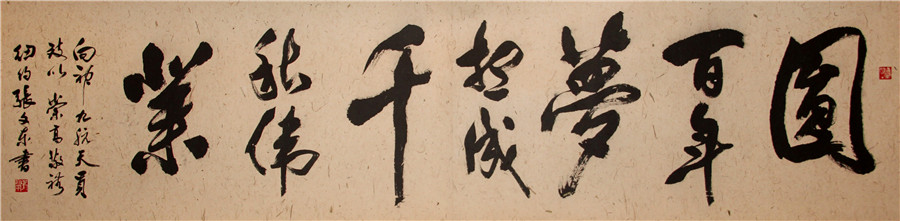 圓
百年
夢
想成
千
秋伟
業
向神九航天員
致以崇高敬禮
纽约張文东書